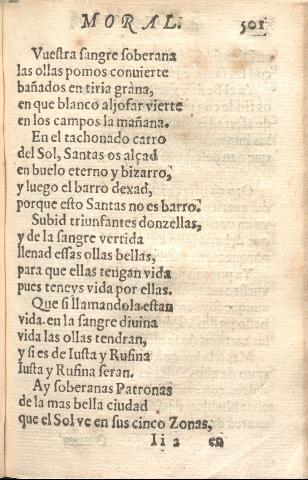 MORAL. 501
Vuestra sangre soberana
las ollas pomos conuierte
bañados en tiria gràna,
en que blanco aljofar vierte
en los campos la mañana.
En el tachonado carro
del Sol, Santas os alçad
en buelo eterno y bizarro,
y luego el barro dexad,
porque esto Santas no es barro.
Subid triunfantes donzellas,
y de la sangre vertida
llenad essas ollas bellas,
para que ellas tengan vida
pues teneys vida por ellas.
Que si llamandola estan
vida. en la sangre diuina
vida las ollas tendran,
y si es de Iusta y Rufina
Iusta y Rufina seran.
Ay soberanas Patronas
de la mas bella ciudad
que el Sol ve en sus cinco Zonas,
Ii 2 en